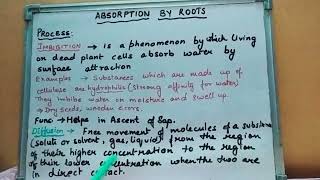 ABSORPTION BY ROOTS
PROCESS:
IMBIBITION → is a phenomenon by which living
or dead plant cells absorb water by
surface attraction
Examples → Substances which are made up of
cellulose are hydrophilic (strong affinity for water)
They imbibe water or moisture and swell up.
⇒ Dry seeds, wooden doors.
Func → Helps in Ascent of Sap.
Diffusion → Free movement of molecules of a substance
(solute or solvent, gas, liquid) from the region
of their higher concentration to the region
of their lower concentration when the two are
in direct contact.